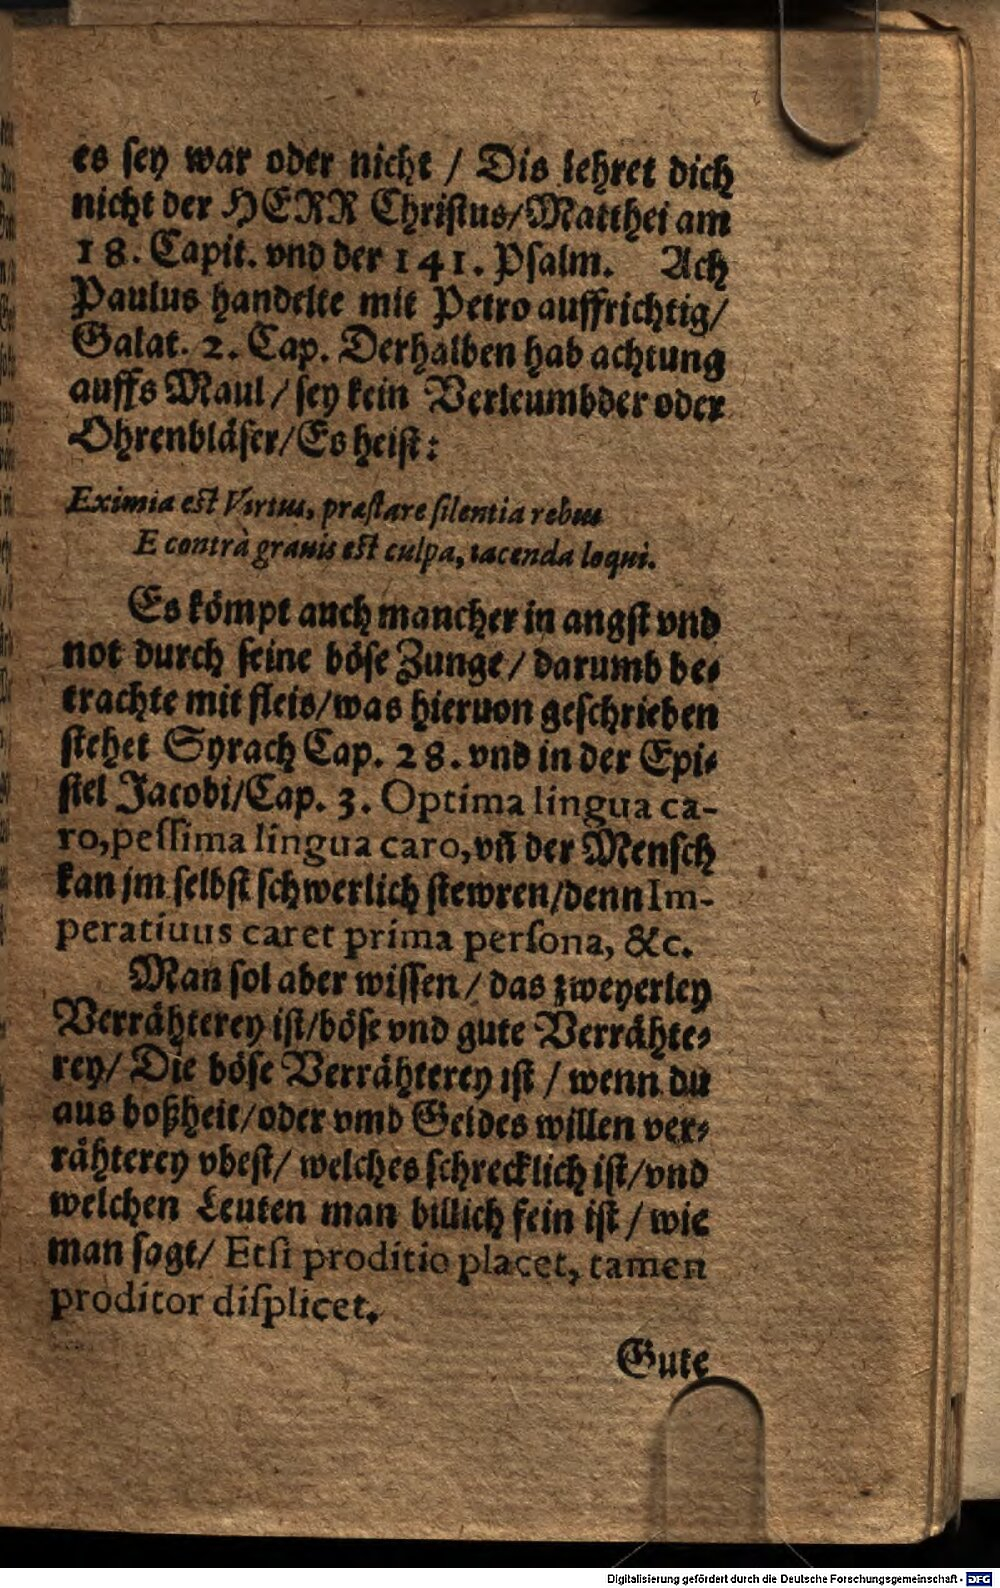 es sey war oder nicht / Dis lehret dich
nicht der HERR Christus/Matthei am
18. Capit. vnd der 141. Psalm. Ach
Paulus handelte mit Petro auffrichtig/
Galat. 2. Cap. Derhalben hab achtung
auffs Maul / sey kein Verleumbder oder
Ohrenbläser/Es heist:
Eximia est Virtus, præstare silentia rebus
E contrà grauis est culpa, tacenda loqui.
Es kömpt auch mancher in angst vnd
not durch seine böse Zunge / darumb be-
trachte mit fleis/was hieruon geschrieben
stehet Syrach Cap. 28. vnd in der Epi-
stel Jacobi/Cap. 3. Optima lingua ca-
ro, pessima lingua caro, vñ der Mensch
kan jm selbst schwerlich stewren/denn Im-
peratiuus caret prima persona, &c.
Man sol aber wissen / das zweyerley
Verrähterey ist/böse vnd gute Verrähte-
rey/ Die böse Verrähterey ist / wenn du
aus boßheit/oder vmb Geldes willen ver-
rähterey vbest/ welches schrecklich ist/vnd
welchen Leuten man billich fein ist / wie
man sagt/ Etsi proditio placet, tamen
proditor displicet.
Gute
Digitalisierung gefördert durch die Deutsche Forschungsgemeinschaft - DFG